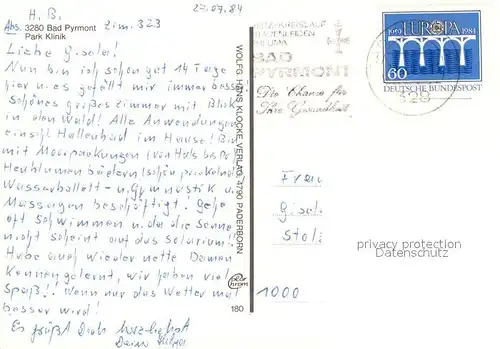 H. B. 22.07.84
Abs. 3280 Bad Pyrmont Zim. 323
Park Klinik
Liebe Gisela!
Nun bin ich schon gut 14 Tage
hier u. es gefällt mir immer besser
schönes großes Zimmer mit Blick
in den Wald! Alle Anwendungen
einschl. Hallenbad im Hause! Bin
mit Moorpackungen (von Hals bis Po)
Heublumenbädern (schön prickelnd)
Wasserballett - u. Gymnastik u.
Massagen beschäftigt! Gehe
oft schwimmen u. da die Sonne
nicht scheint auf das Solarium!
Habe auch wieder nette Damen
kennengelernt, wir haben viel
Spaß! Wenn nur das Wetter mal
besser wird!
Es grüßt Dich herzlichst
Deine
WOLFGANG KLOCKE VERLAG, 4790 PADERBORN
180
HERZ-KREISLAUF
FRAUENLEIDEN
RHEUMA
BAD
PYRMONT
Die Chance für
Ihre Gesundheit
EUROPA
1959 1984
60
DEUTSCHE BUNDESPOST
328
Frau
Gisel
Stol
1000
privacy protection
Datenschutz